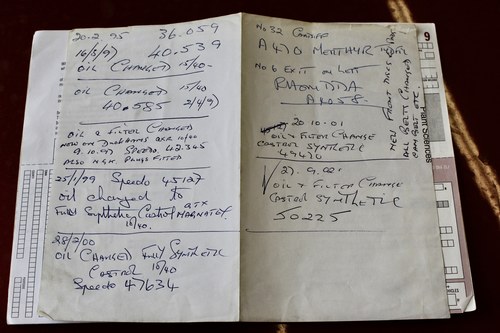 20.2.95 36.059
16/3/97 40.539
OIL CHANGED 15/40
OIL CHANGED 15/40
40.585 21/4/97
OIL & FILTER CHANGED
NOW ON DURAHAWKS 10/40
9.10.97 SPEEDO 42.345
ALSO N.G.K. PLUGS FITTED
25/1/99 Speedo 45127
Oil changed to
Fully Synthetic Castrol GTX MAGNATEX
10/40.
28/2/00
OIL CHANGED FULLY SYNTHETIC
CASTROL 10/40
Speedo 47634
No 32 CARDIFF
A 470 MERTHYR
No 6 EXIT ON LEFT
RHONDDA
A4058.
20.10.01
OIL & FILTER CHANGE
CASTROL SYNTHETIC
49470
OIL & FILTER CHANGE
CASTROL SYNTHETIC
50225
NEW FRONT TYRES
ALL BELTS CHANGED
CAM BELT ETC
9
Plain Sciences